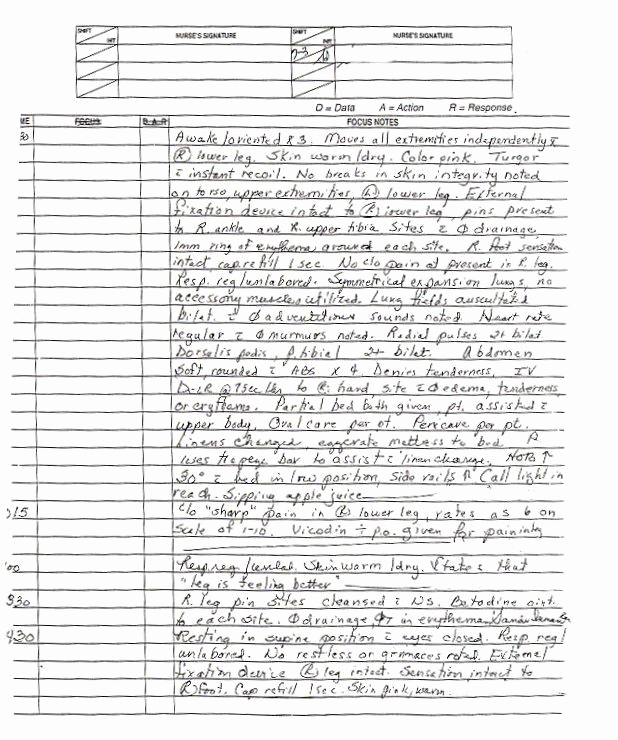 SHIFT INIT NURSE'S SIGNATURE SHIFT INIT NURSE'S SIGNATURE
7-3
D = Data A = Action R = Response
ME FOCUS D A R FOCUS NOTES
30 Awake/oriented x 3. Moves all extremities independently c̄
Ⓡ lower leg. Skin warm/dry. Color pink. Turgor
c̄ instant recoil. No breaks in skin integrity noted
on torso, upper extremities, Ⓛ lower leg. External
fixation device intact to Ⓡ lower leg, pins present
to R. ankle and R. upper tibia. Sites c̄ Ø drainage,
1mm ring of erythema around each site. R. foot sensation
intact, cap refill 1 sec. No c/o pain at present in R. leg.
Resp. reg/unlabored. Symmetrical expansion lungs, no
accessory muscles utilized. Lung fields auscultated
bilat. c̄ Ø adventitious sounds noted. Heart rate
regular c̄ Ø murmurs noted. Radial pulses 2+ bilat
Dorsalis pedis, p. tibial 2+ bilat. Abdomen
Soft, rounded c̄ ABS x 4. Denies tenderness, IV
D5LR @ 75cc/hr to hand site c̄ Ø edema, tenderness
or erythema. Partial bed bath given, pt. assisted c̄
upper body. Oral care per pt. Pericare per pt.
Linens changed eggcrate mattress to bed. P
uses trapeze bar to assist c̄ linen change. HOB ↑
30° c̄ bed in low position, side rails ↑ Call light in
reach. Sipping apple juice
015 C/o "sharp" pain in Ⓡ lower leg, rates as 6 on
Scale of 1-10. Vicodin p.o. given for pain
00 Resp reg/unlab. Skin warm/dry. States that
"leg is feeling better"
330 R. leg pin sites cleansed c̄ NS. Betadine oint.
to each site. Ø drainage, Ø↑ in erythema
430 Resting in supine position c̄ eyes closed. Resp. reg/
unlabored. No restless or grimaces noted. External
fixation device Ⓡ leg intact. Sensation intact to
Ⓡ foot. Cap refill 1 sec. Skin pink, warm.